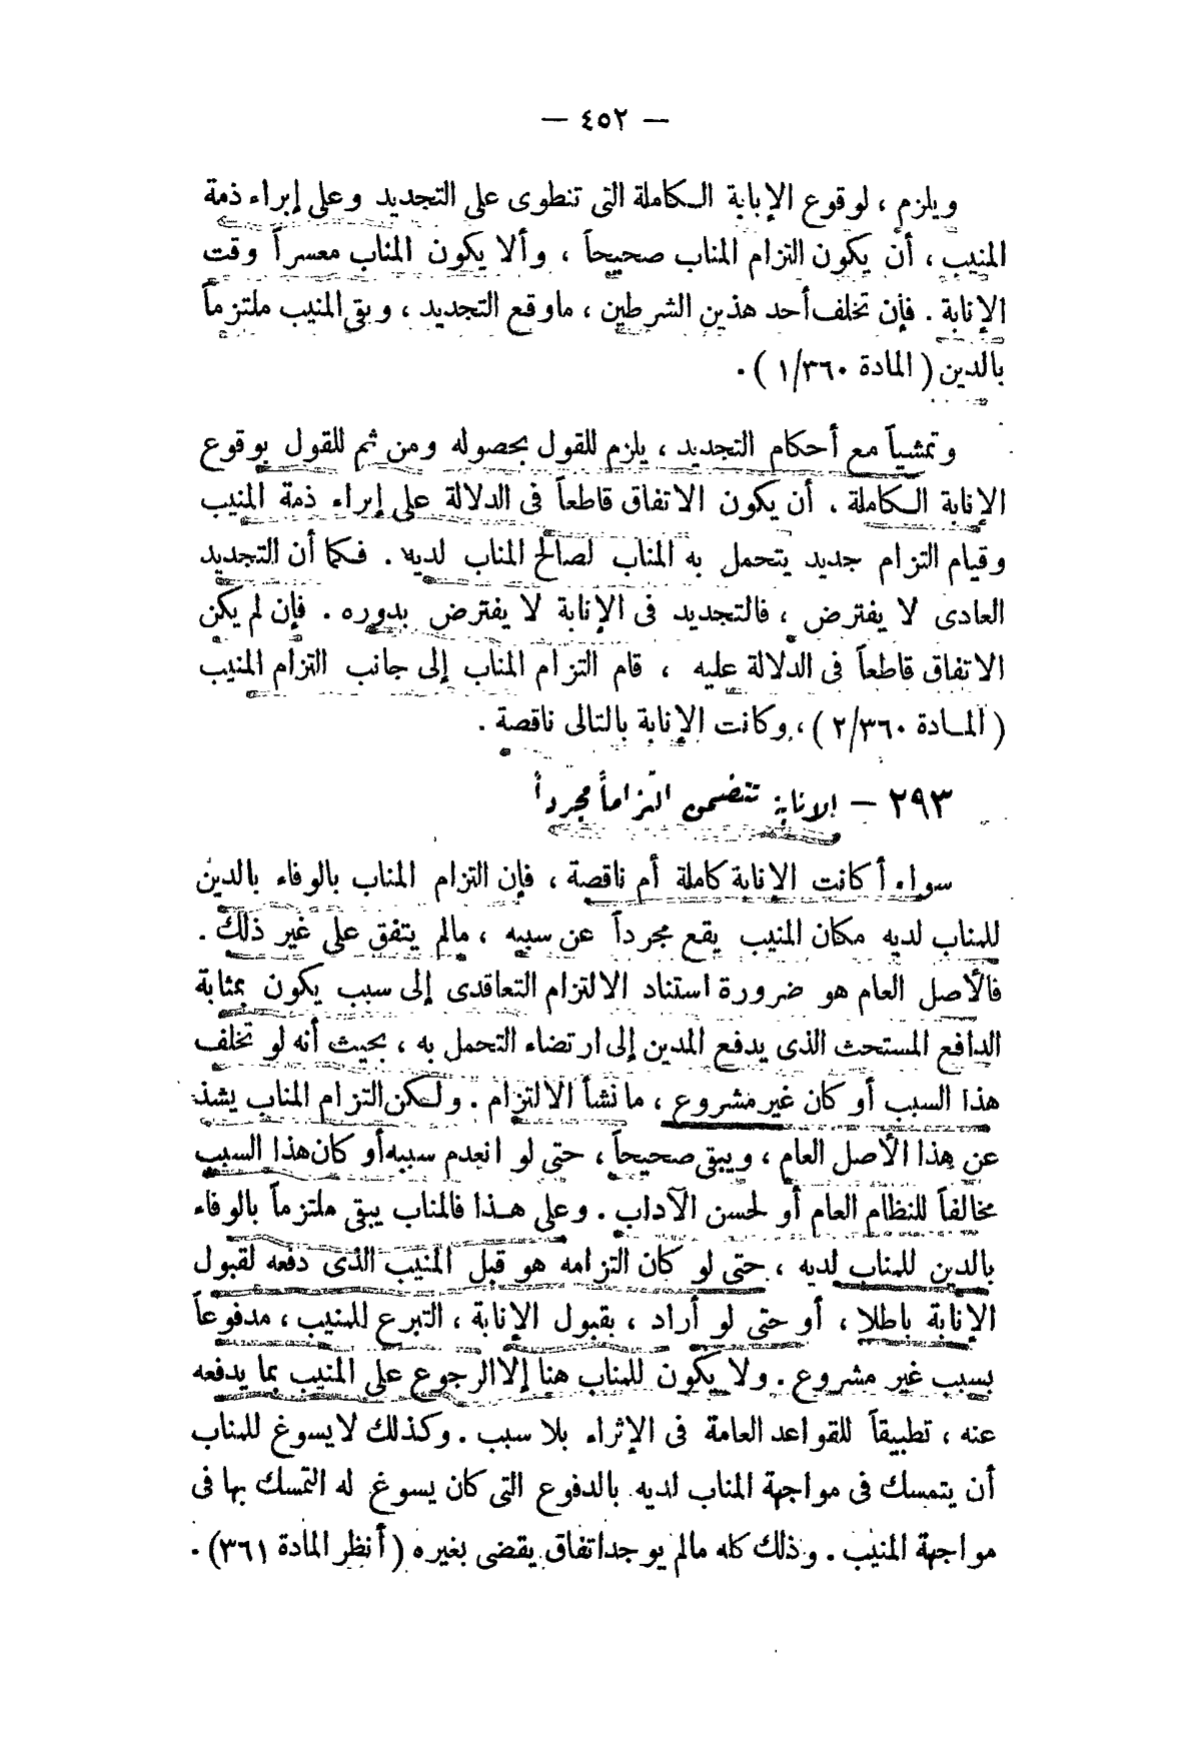 — ٤٥٢ —
ويلزم ، لوقوع الإبابة الكاملة التى تنطوى على التجديد وعلى إبراء ذمة
المنيب ، أن يكون التزام المناب صحيحاً ، وألا يكون المناب معسراً وقت
الإنابة . فإن تخلف أحد هذين الشرطين ، ماوقع التجديد ، وبقى المنيب ملتزماً
بالدين ( المادة ١/٣٦٠ ) .
وتمشياً مع أحكام التجديد ، يلزم للقول بحصوله ومن ثم للقول بوقوع
الإنابة الكاملة . أن يكون الاتفاق قاطعاً فى الدلالة على إبراء ذمة المنيب
وقيام التزام جديد يتحمل به المناب لصالح المناب لديه . فكما أن التجديد
العادى لا يفترض ، فالتجديد فى الإنابة لا يفترض بدوره . فإن لم يكن
الاتفاق قاطعاً فى الدلالة عليه ، قام التزام المناب إلى جانب التزام المنيب
( المادة ٢/٣٦٠ ) ، وكانت الإنابة بالتالى ناقصة .
٢٩٣ — الإنابة تتضمن التزاماً مجرداً
سواء أكانت الإنابة كاملة أم ناقصة ، فإن التزام المناب بالوفاء بالدين
للمناب لديه مكان المنيب يقع مجرداً عن سببه ، مالم يتفق على غير ذلك .
فالأصل العام هو ضرورة استناد الالتزام التعاقدى إلى سبب يكون بمثابة
الدافع المستحث الذى يدفع المدين إلى ارتضاء التحمل به ، بحيث أنه لو تخلف
هذا السبب أو كان غير مشروع ، ما نشأ الالتزام . ولكن التزام المناب يشذ
عن هذا الأصل العام ، ويبقى صحيحاً ، حتى لو انعدم سببه أو كان هذا السبب
مخالفاً للنظام العام أو لحسن الآداب . وعلى هذا فالمناب يبقى ملتزماً بالوفاء
بالدين للمناب لديه ، حتى لو كان التزامه هو قبل المنيب الذى دفعه لقبول
الإنابة باطلا ، أو حتى لو أراد ، بقبول الإنابة ، التبرع للمنيب ، مدفوعاً
بسبب غير مشروع . ولا يكون للمناب هنا إلا الرجوع على المنيب بما يدفعه
عنه ، تطبيقاً للقواعد العامة فى الإثراء بلا سبب . وكذلك لايسوغ للمناب
أن يتمسك فى مواجهة المناب لديه بالدفوع التى كان يسوغ له التمسك بها فى
مواجهة المنيب . وذلك كله مالم يوجد اتفاق يقضى بغيره ( أنظر المادة ٣٦١) .